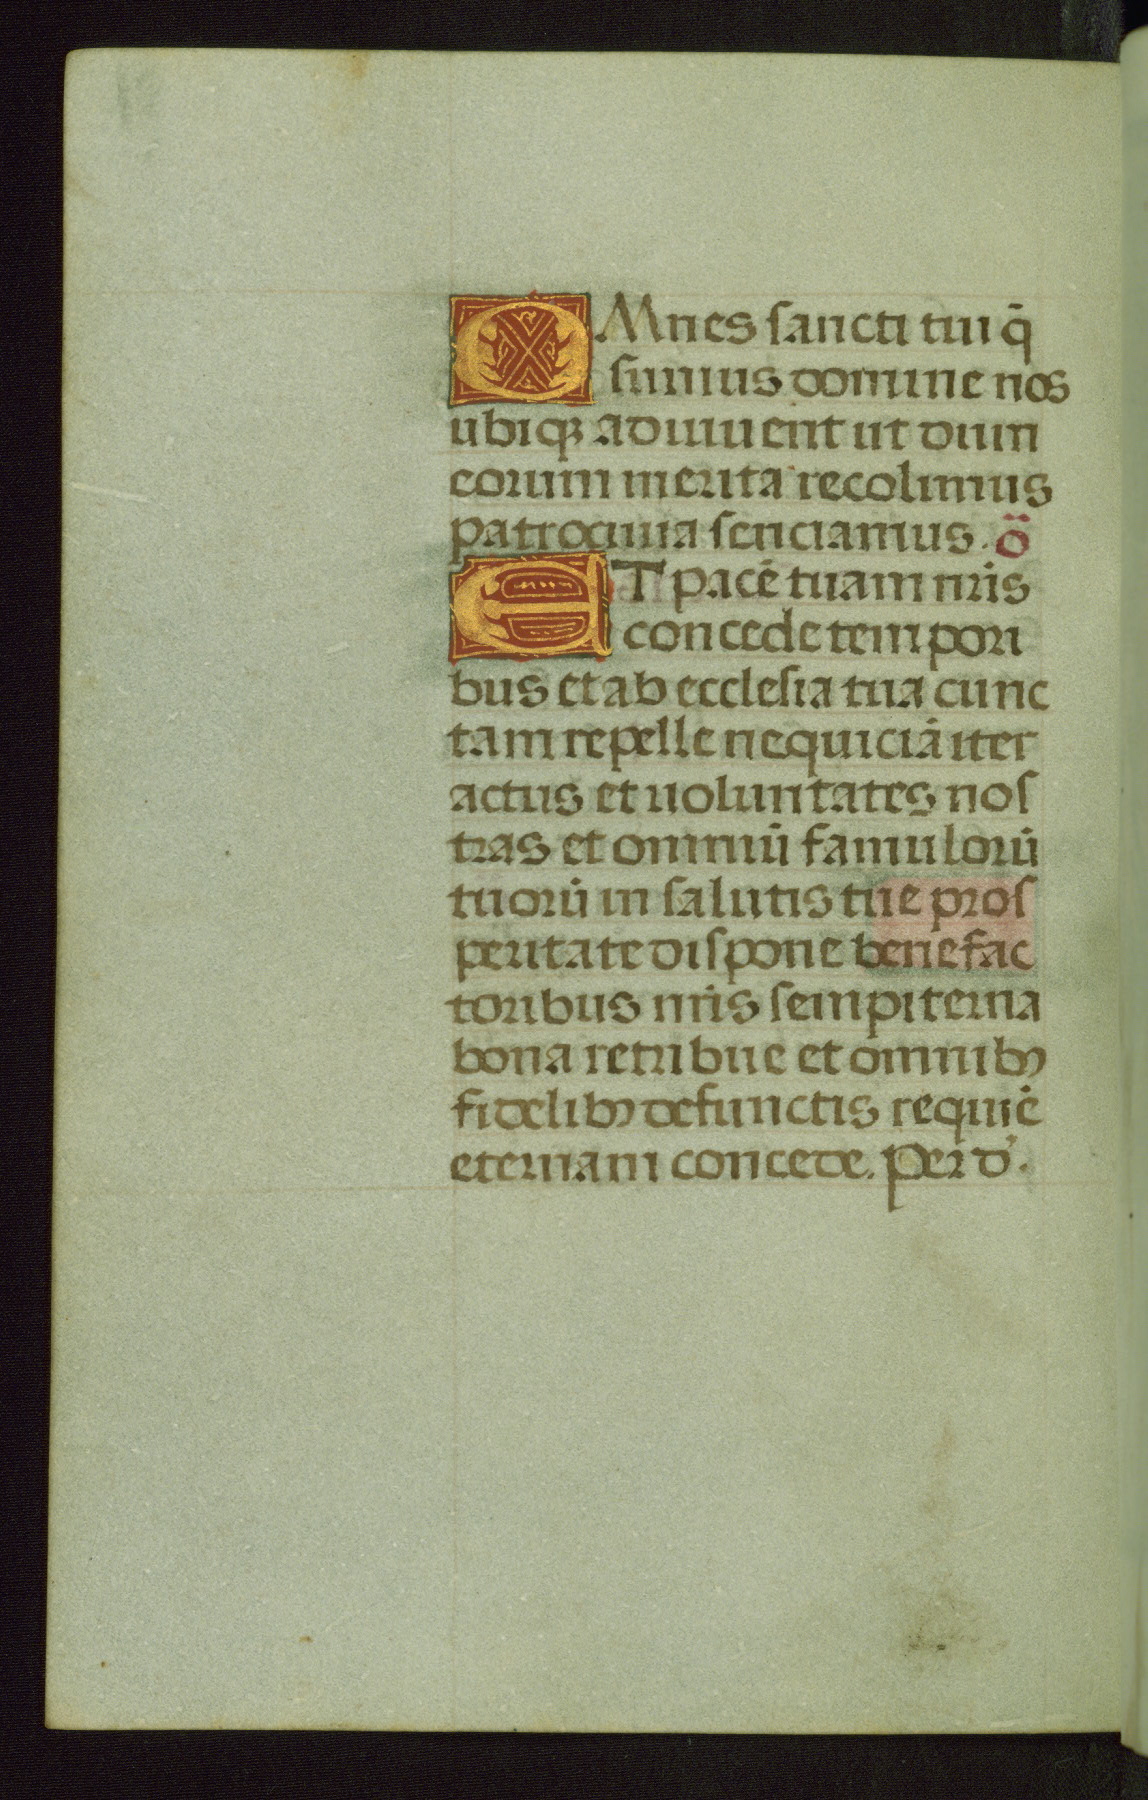 OMnes sancti tui q̄
sumus domine nos
ubiqꝫ adiuuent ut dum
eorum merita recolimus
patrocinia senciamus. ō
ET pacē tuam nr̄is
concede tempori
bus et ab ecclesia tua cunc
tam repelle nequiciā iter
actus et uoluntates nos
tras et omniū famulorū
tuorū in salutis tue pros
peritate dispone benefac
toribus nr̄is sempiterna
bona retribue et omnibꝫ
fidelibꝫ defunctis requiē
eternam concede. Per d'.